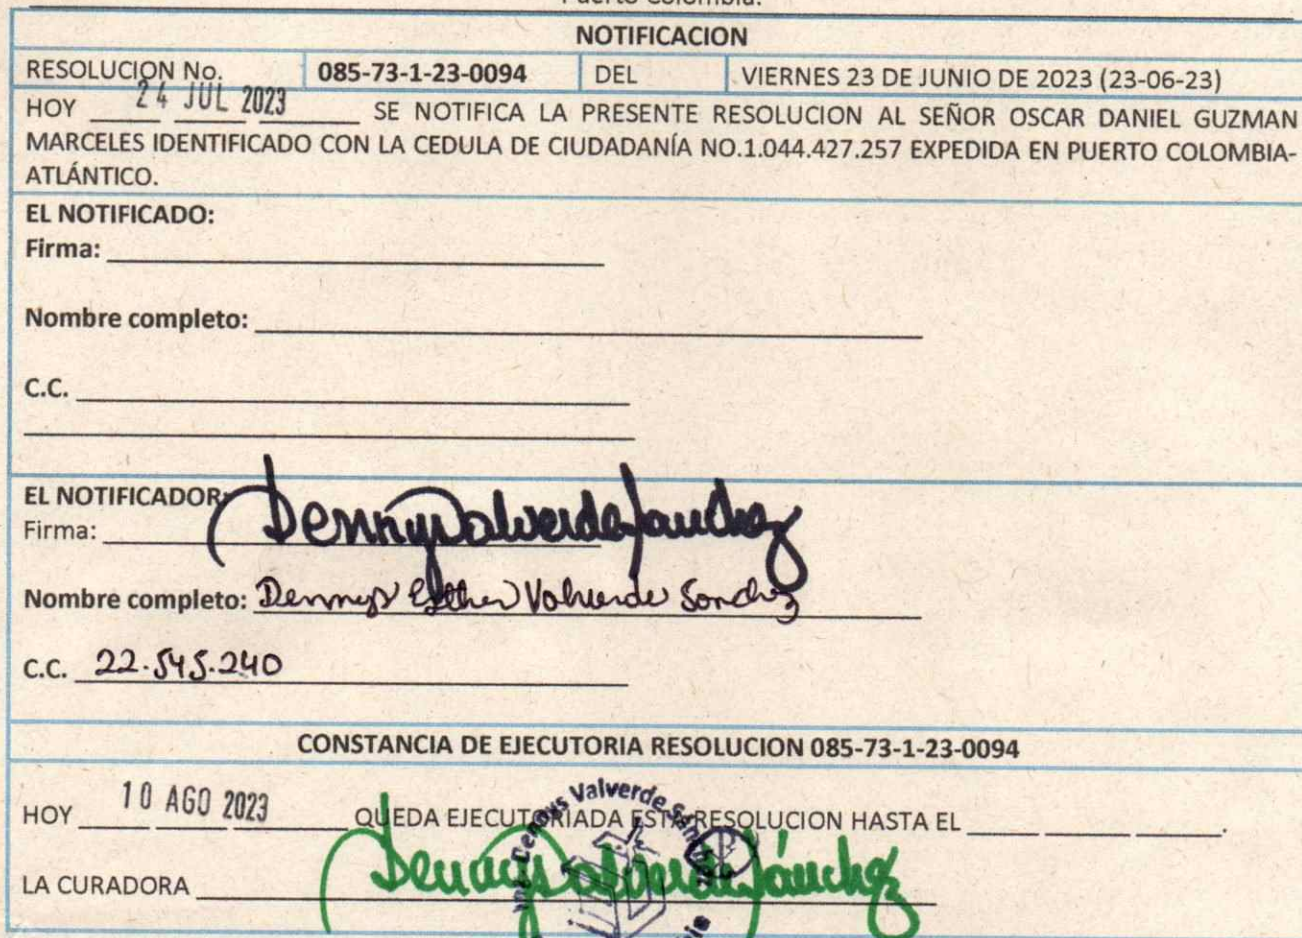 Puerto Colombia.
NOTIFICACION
RESOLUCION No. 085-73-1-23-0094 DEL VIERNES 23 DE JUNIO DE 2023 (23-06-23)
HOY 24 JUL 2023 SE NOTIFICA LA PRESENTE RESOLUCION AL SEÑOR OSCAR DANIEL GUZMAN
MARCELES IDENTIFICADO CON LA CEDULA DE CIUDADANÍA NO.1.044.427.257 EXPEDIDA EN PUERTO COLOMBIA-
ATLÁNTICO.
EL NOTIFICADO:
Firma:
Nombre completo:
C.C.
EL NOTIFICADOR:
Firma: Dennys Valverde Sanchez
Nombre completo: Dennys Esther Valverde Sanchez
C.C. 22.545.240
CONSTANCIA DE EJECUTORIA RESOLUCION 085-73-1-23-0094
HOY 10 AGO 2023 QUEDA EJECUTORIADA ESTA RESOLUCION HASTA EL
LA CURADORA Dennys Valverde Sánchez
Dennys Valverde Sánchez